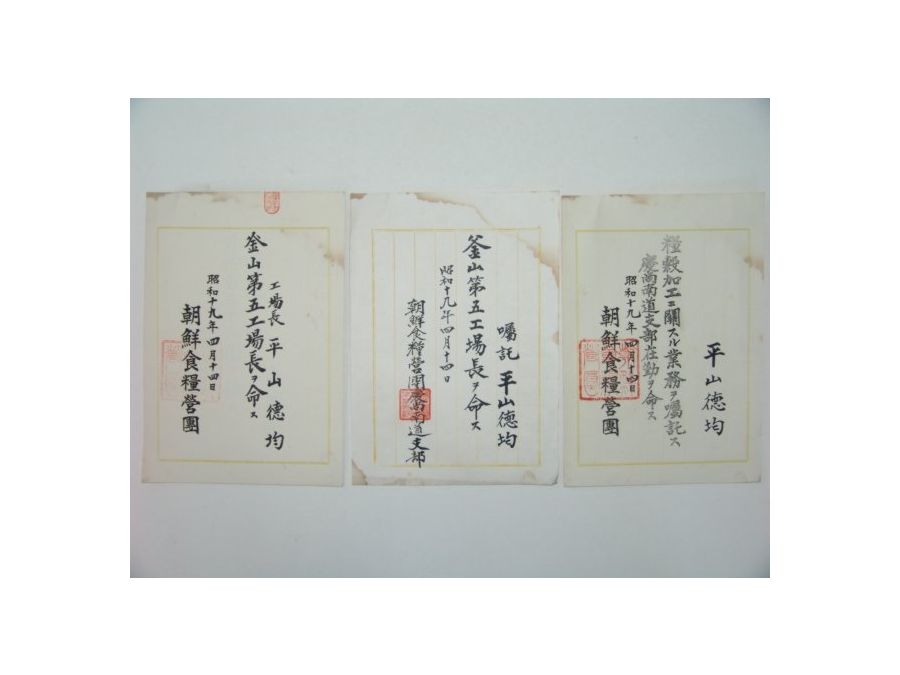 工場長 平山德均
釡山第五工場長ヲ命ス
昭和十九年四月十四日
朝鮮食糧營團
囑託 平山德均
釜山第五工場長ヲ命ス
昭和十九年四月十四日
朝鮮食糧營團慶尚南道支部
平山德均
糧穀加工ニ關スル業務ヲ囑託ス
慶尚南道支部在勤ヲ命ス
昭和十九年四月十四日
朝鮮食糧營團